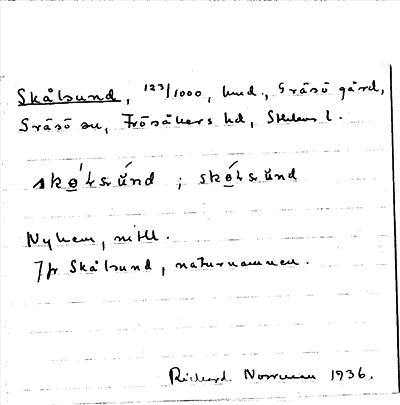 Skålsund, 123/1000, hmd., Gräsö gård,
Gräsö sn, Frösåkers hd, Sthlms l.
skọ́ḷsŭnd ; skọ́ḷsŭnd
Nyhem, mtl.
Jfr Skålsund, naturnamnen.
Rickard Norrman 1936.